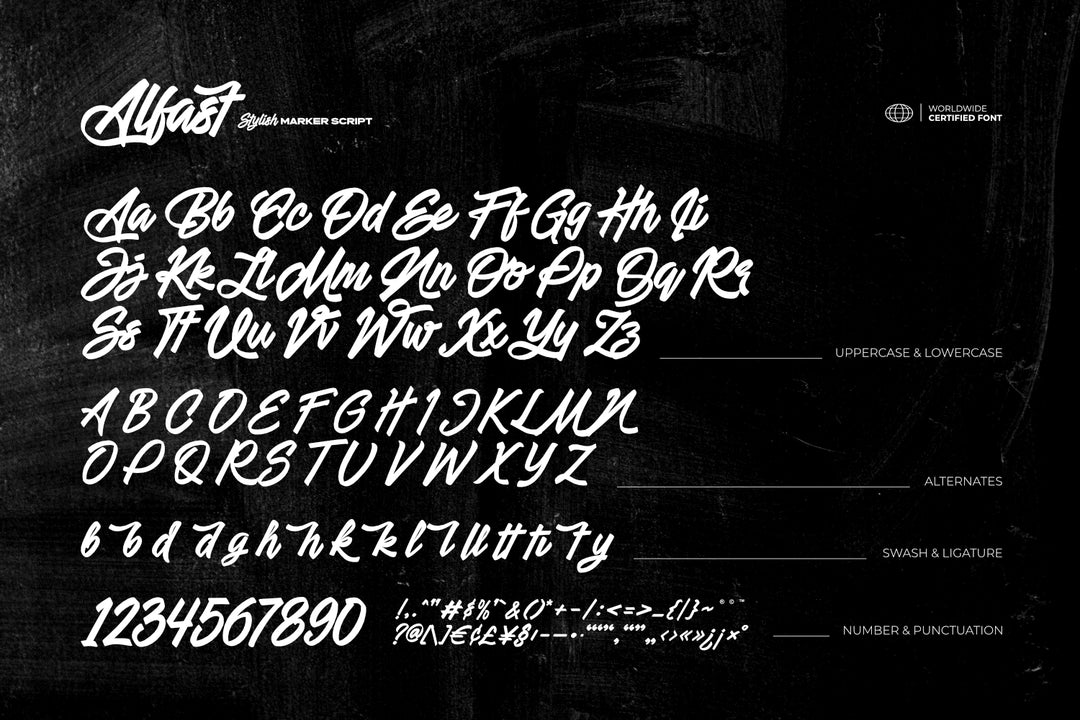 Alfast Stylish MARKER SCRIPT
WORLDWIDE
CERTIFIED FONT
Aa Bb Cc Dd Ee Ff Gg Hh Ii
Jj Kk Ll Mm Nn Oo Pp Qq Rr
Ss Tt Uu Vv Ww Xx Yy Zz
UPPERCASE & LOWERCASE
A B C D E F G H I J K L M N
O P Q R S T U V W X Y Z
ALTERNATES
b b d d g h h k k l l ll tt ti t y
SWASH & LIGATURE
1234567890
!,.^"#$%'`&()*+-/:<=>_{|}~®©™
?@[\]€¢£¥§
NUMBER & PUNCTUATION